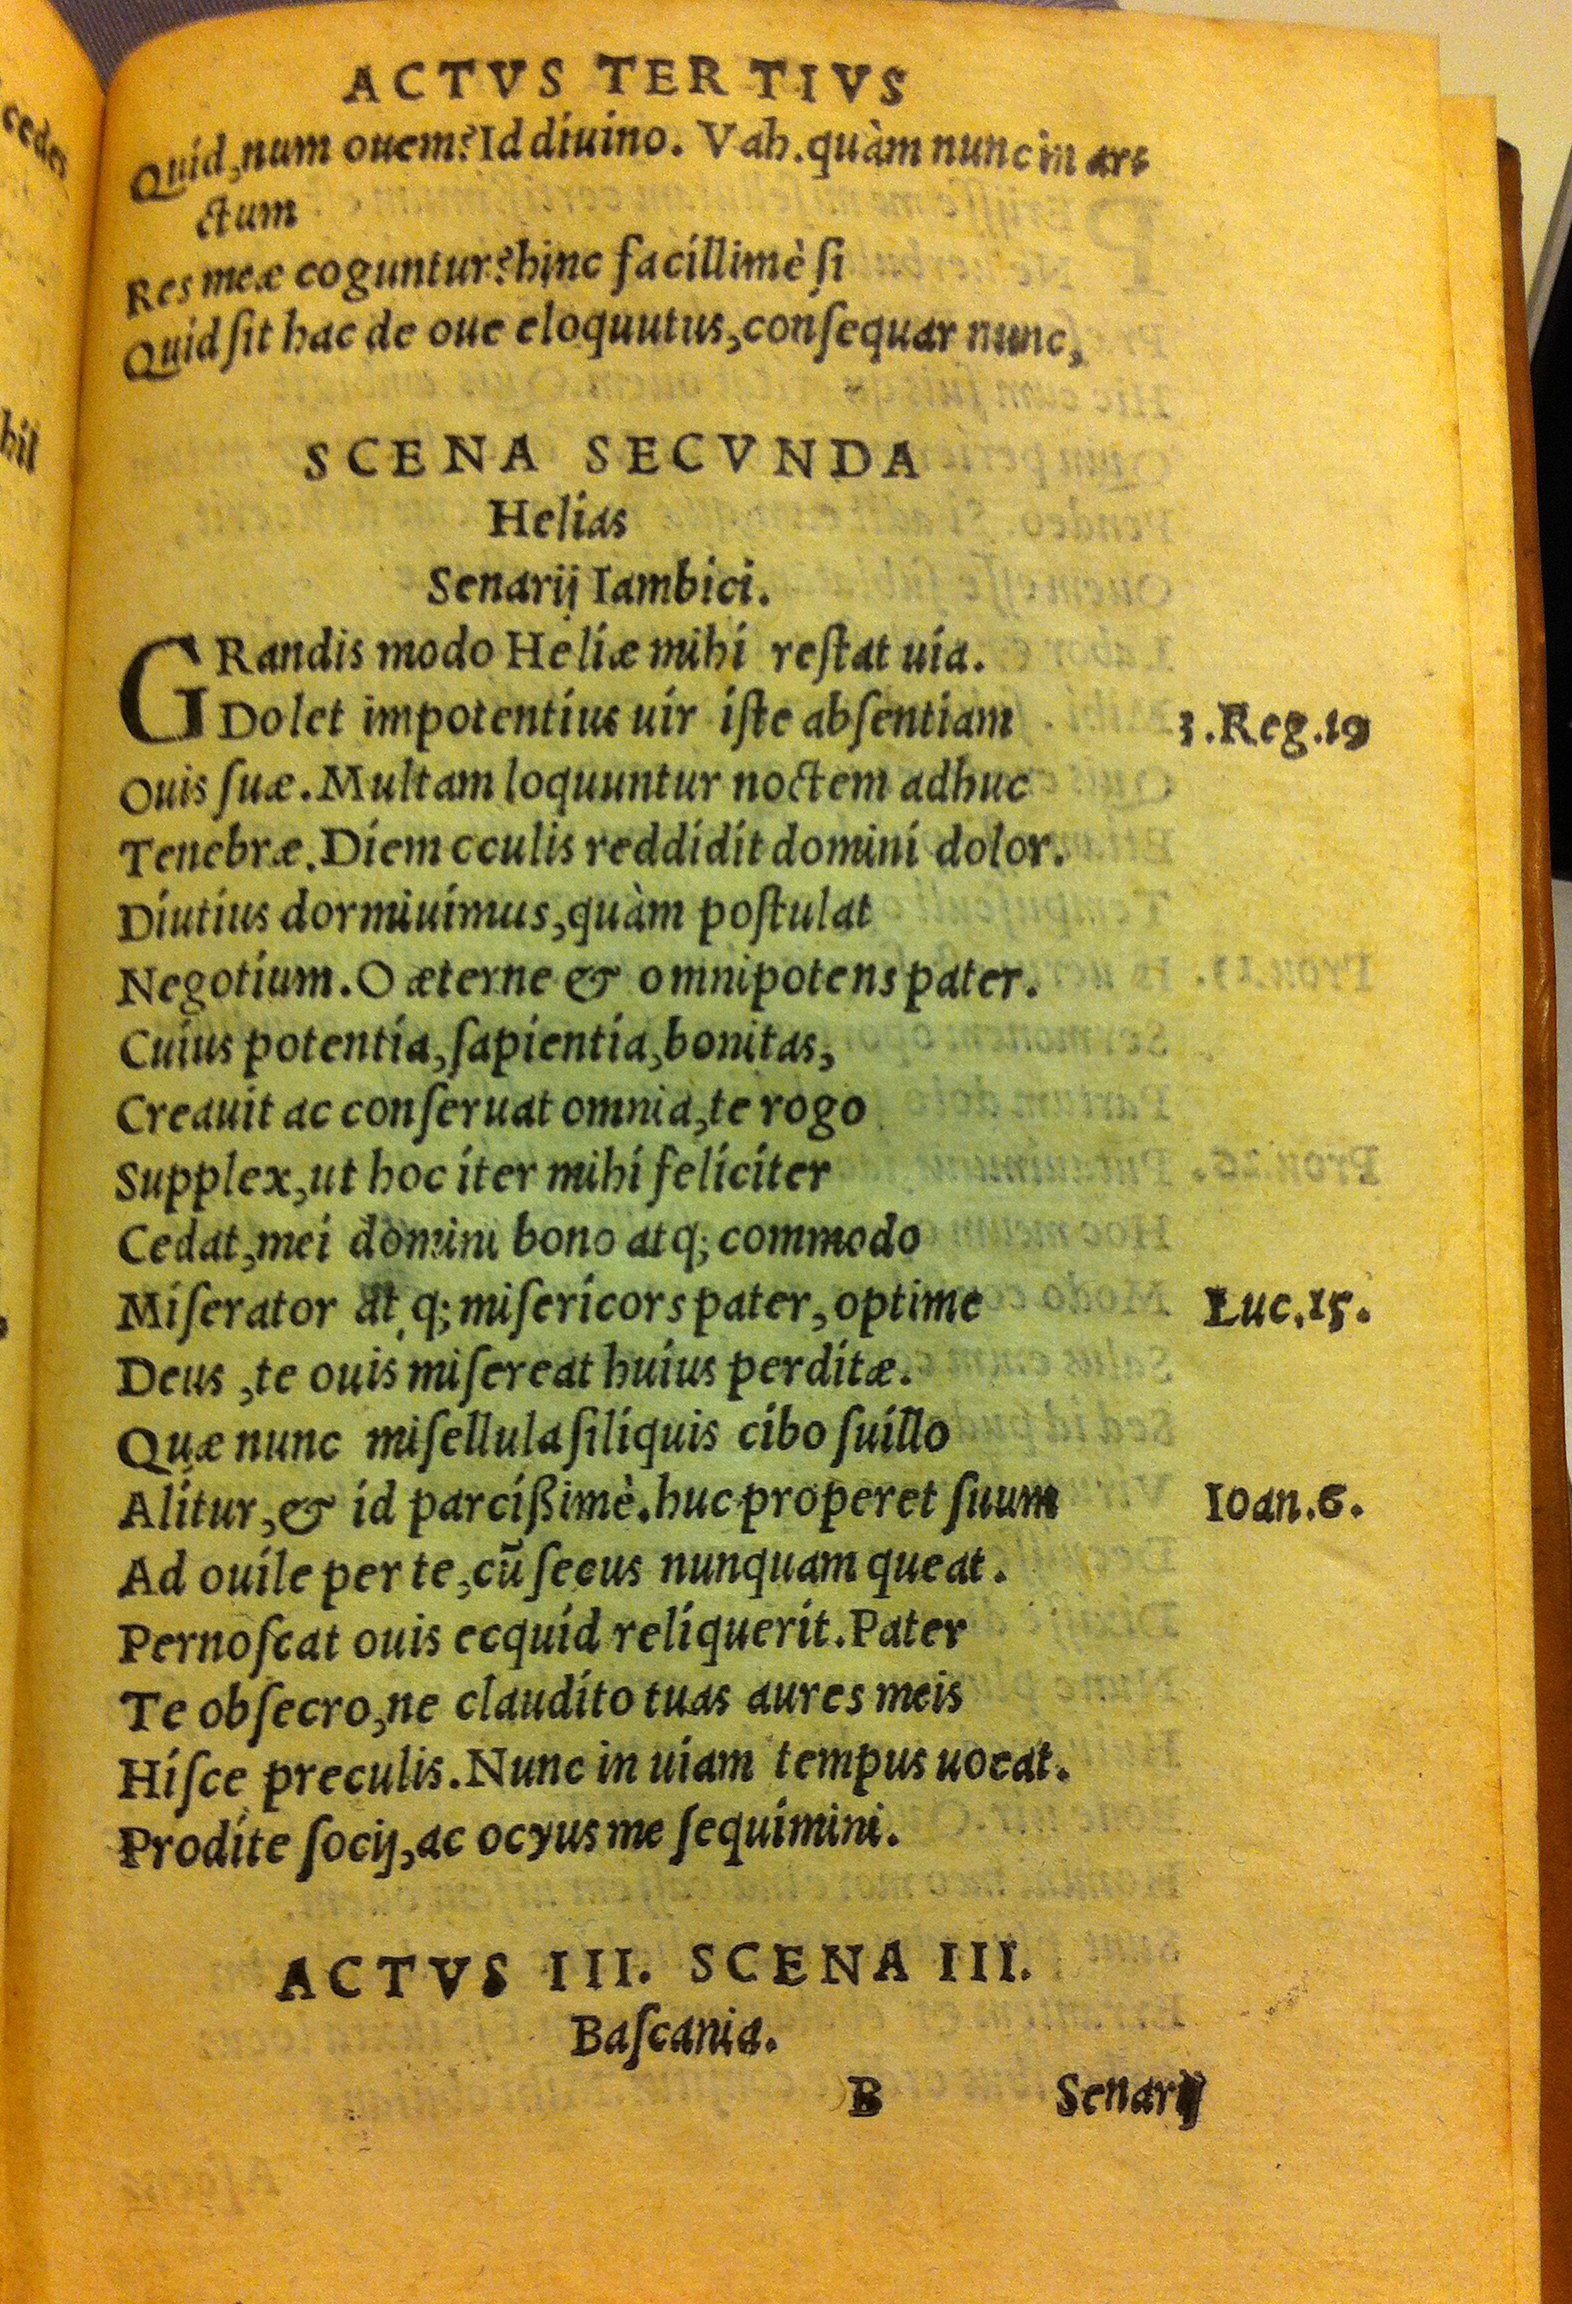 cedes
hil
ACTVS TERTIVS
Quid, num ouem? Id diuino. Vah. quàm nunc in arc
ctum
Res meæ coguntur? hinc facillimè ſi
Quid ſit hac de oue eloquutus, conſequar nunc,
SCENA SECVNDA
Helias
Senarij Iambici.
GRandis modo Heliæ mihi reſtat uia.
Dolet impotentius uir iſte abſentiam
3. Reg. 19
Ouis ſuæ. Multam loquuntur noctem adhuc
Tenebræ. Diem cculis reddidit domini dolor.
Diutius dormiuimus, quàm poſtulat
Negotium. O æterne & omnipotens pater.
Cuius potentia, ſapientia, bonitas,
Creauit ac conſeruat omnia, te rogo
Supplex, ut hoc iter mihi feliciter
Cedat, mei domini bono atq; commodo
Miſerator atq; miſericors pater, optime
Luc. 15.
Deus, te ouis miſereat huius perditæ.
Quæ nunc miſellula ſiliquis cibo ſuillo
Alitur, & id parcißimè. huc properet ſuum
Ioan. 6.
Ad ouile per te, cū ſecus nunquam queat.
Pernoſcat ouis ecquid reliquerit. Pater
Te obſecro, ne claudito tuas aures meis
Hiſce preculis. Nunc in uiam tempus uocat.
Prodite ſocij, ac ocyus me ſequimini.
ACTVS III. SCENA III.
Baſcania.
B Senarij